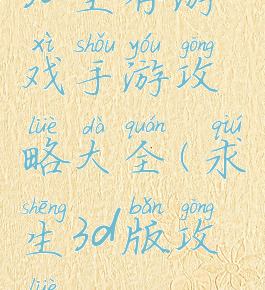 xì shǒu yóu gōng
戏手游攻
lüè dà quán qiú
略大全(求
shēng bǎn gōng
生3d版攻
lüè